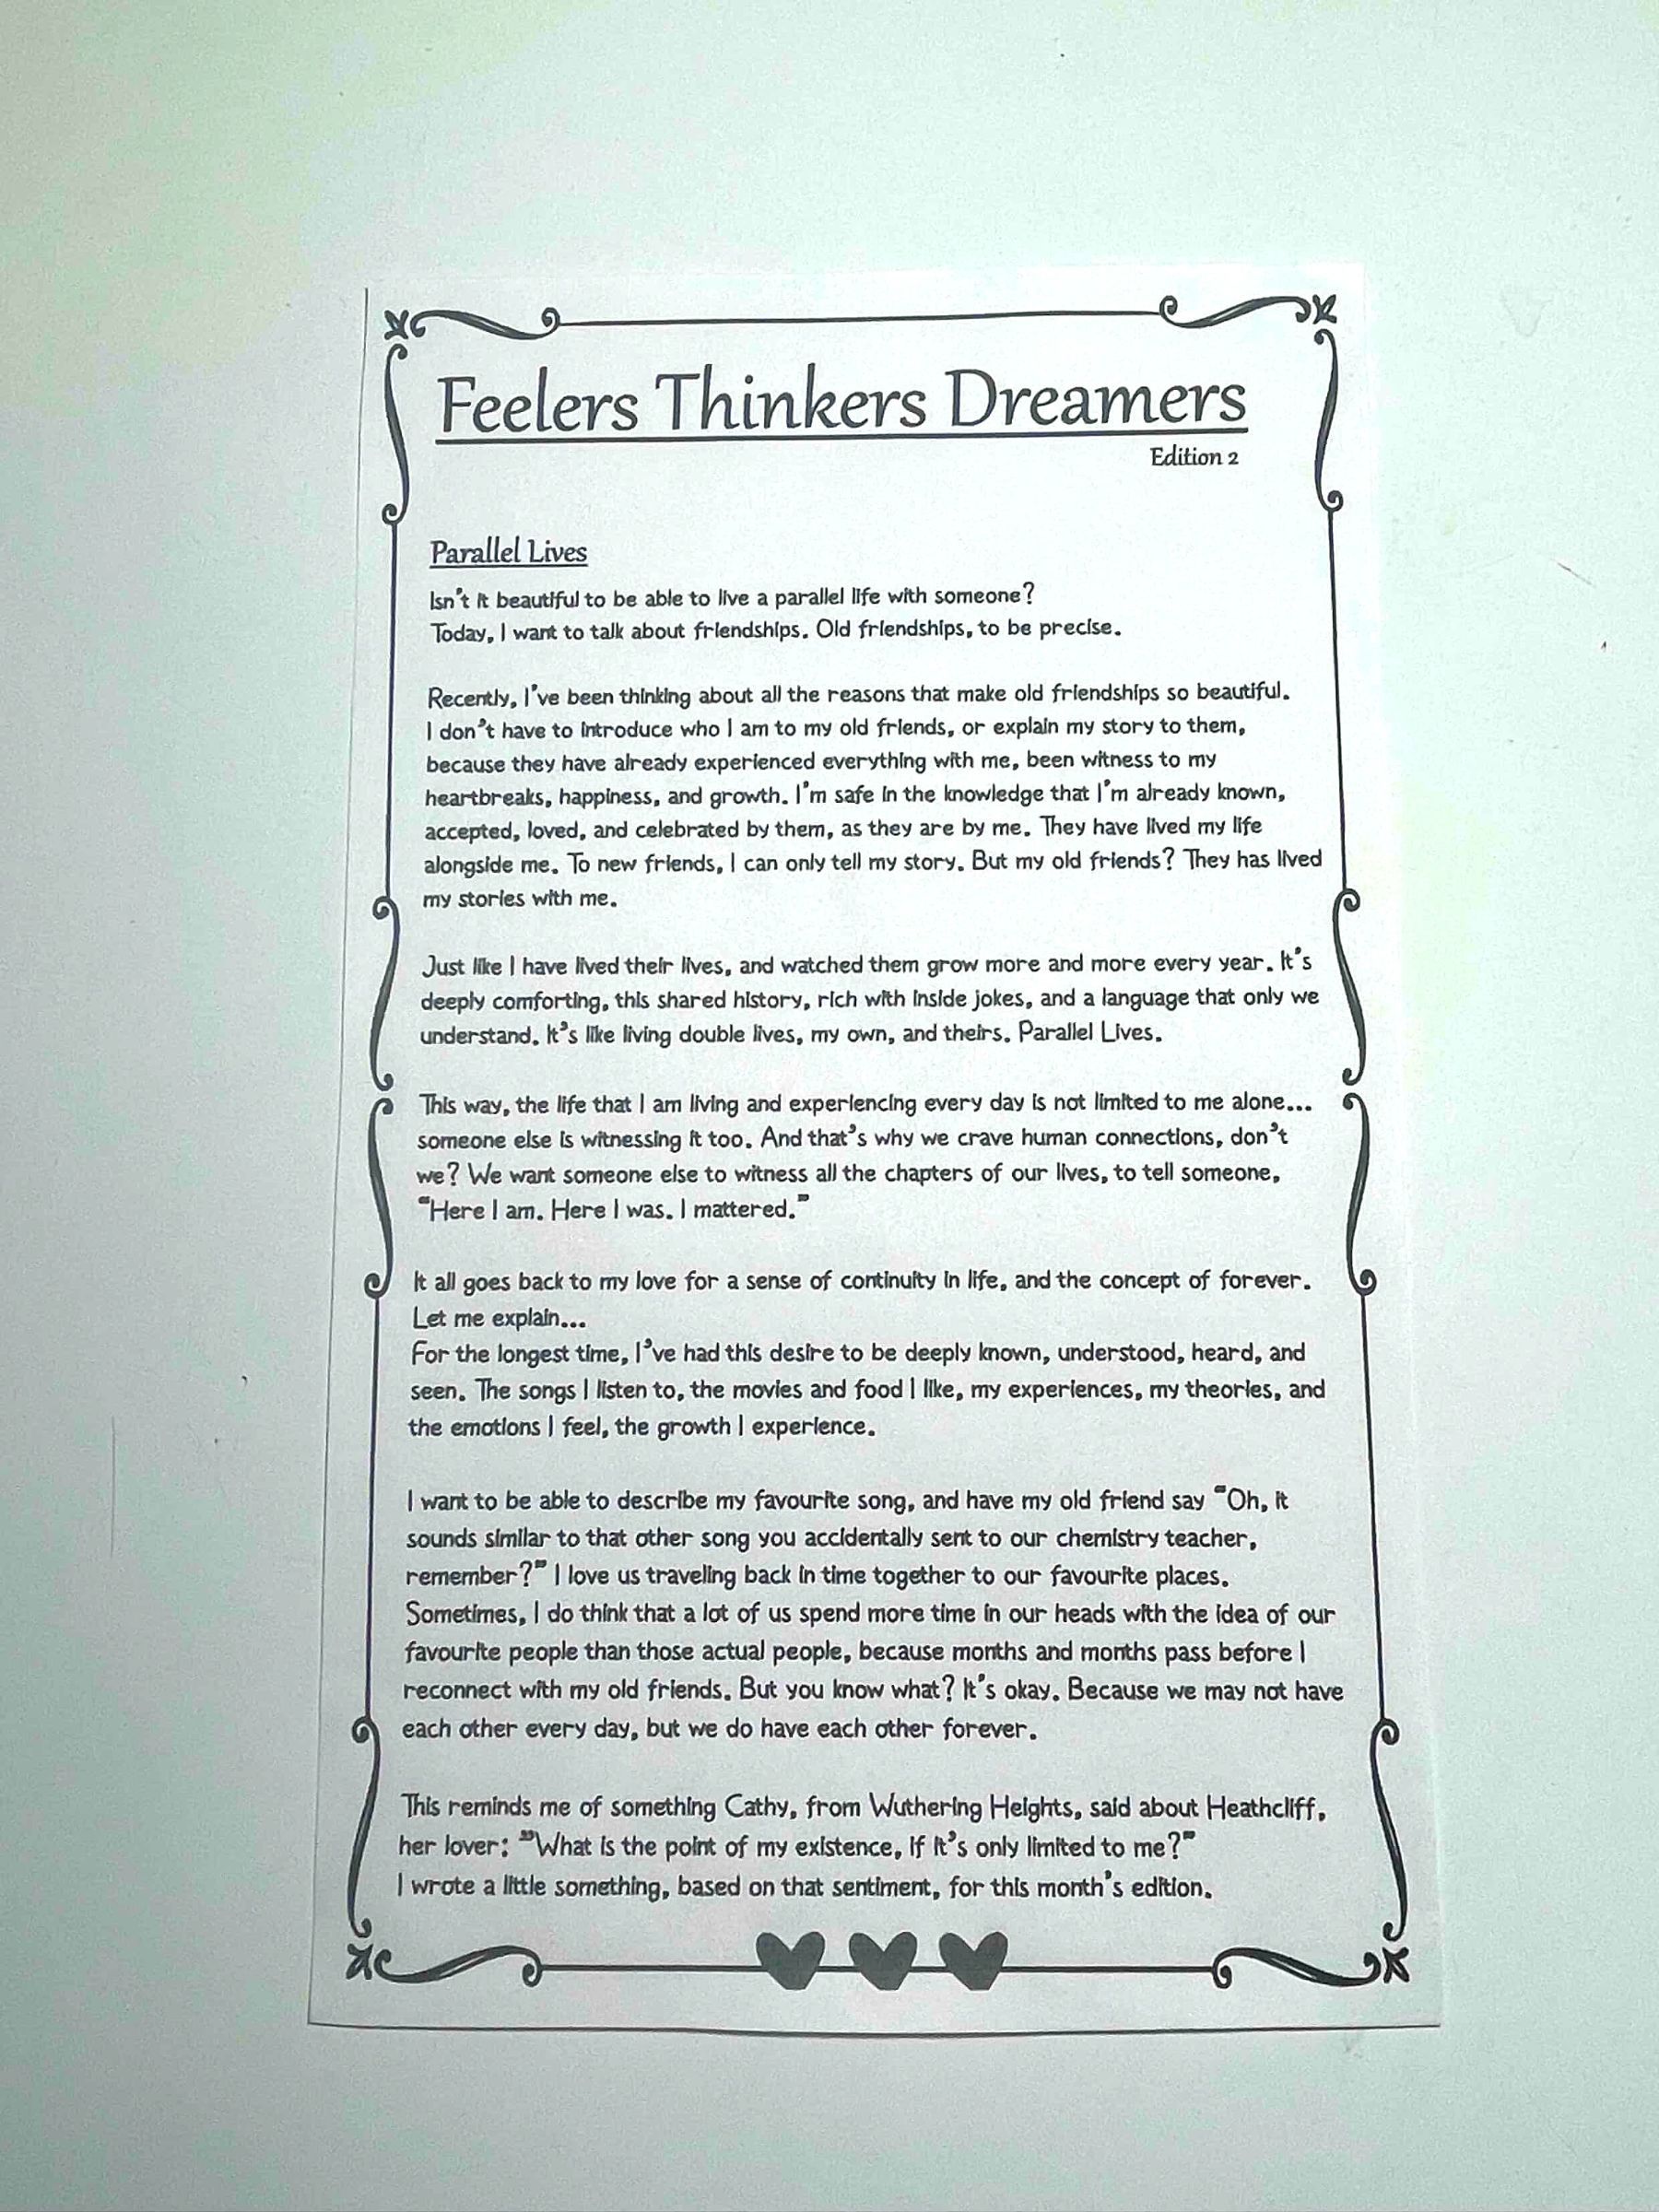 Feelers Thinkers Dreamers
Edition 2
Parallel Lives
Isn't it beautiful to be able to live a parallel life with someone?
Today, I want to talk about friendships. Old friendships, to be precise.
Recently, I've been thinking about all the reasons that make old friendships so beautiful.
I don't have to introduce who I am to my old friends, or explain my story to them,
because they have already experienced everything with me, been witness to my
heartbreaks, happiness, and growth. I'm safe in the knowledge that I'm already known,
accepted, loved, and celebrated by them, as they are by me. They have lived my life
alongside me. To new friends, I can only tell my story. But my old friends? They has lived
my stories with me.
Just like I have lived their lives, and watched them grow more and more every year. It's
deeply comforting, this shared history, rich with inside jokes, and a language that only we
understand. It's like living double lives, my own, and theirs. Parallel Lives.
This way, the life that I am living and experiencing every day is not limited to me alone...
someone else is witnessing it too. And that's why we crave human connections, don't
we? We want someone else to witness all the chapters of our lives, to tell someone,
"Here I am. Here I was. I mattered."
It all goes back to my love for a sense of continuity in life, and the concept of forever.
Let me explain...
For the longest time, I've had this desire to be deeply known, understood, heard, and
seen. The songs I listen to, the movies and food I like, my experiences, my theories, and
the emotions I feel, the growth I experience.
I want to be able to describe my favourite song, and have my old friend say "Oh, it
sounds similar to that other song you accidentally sent to our chemistry teacher,
remember?" I love us traveling back in time together to our favourite places.
Sometimes, I do think that a lot of us spend more time in our heads with the idea of our
favourite people than those actual people, because months and months pass before I
reconnect with my old friends. But you know what? It's okay. Because we may not have
each other every day, but we do have each other forever.
This reminds me of something Cathy, from Wuthering Heights, said about Heathcliff,
her lover: "What is the point of my existence, if it's only limited to me?"
I wrote a little something, based on that sentiment, for this month's edition.